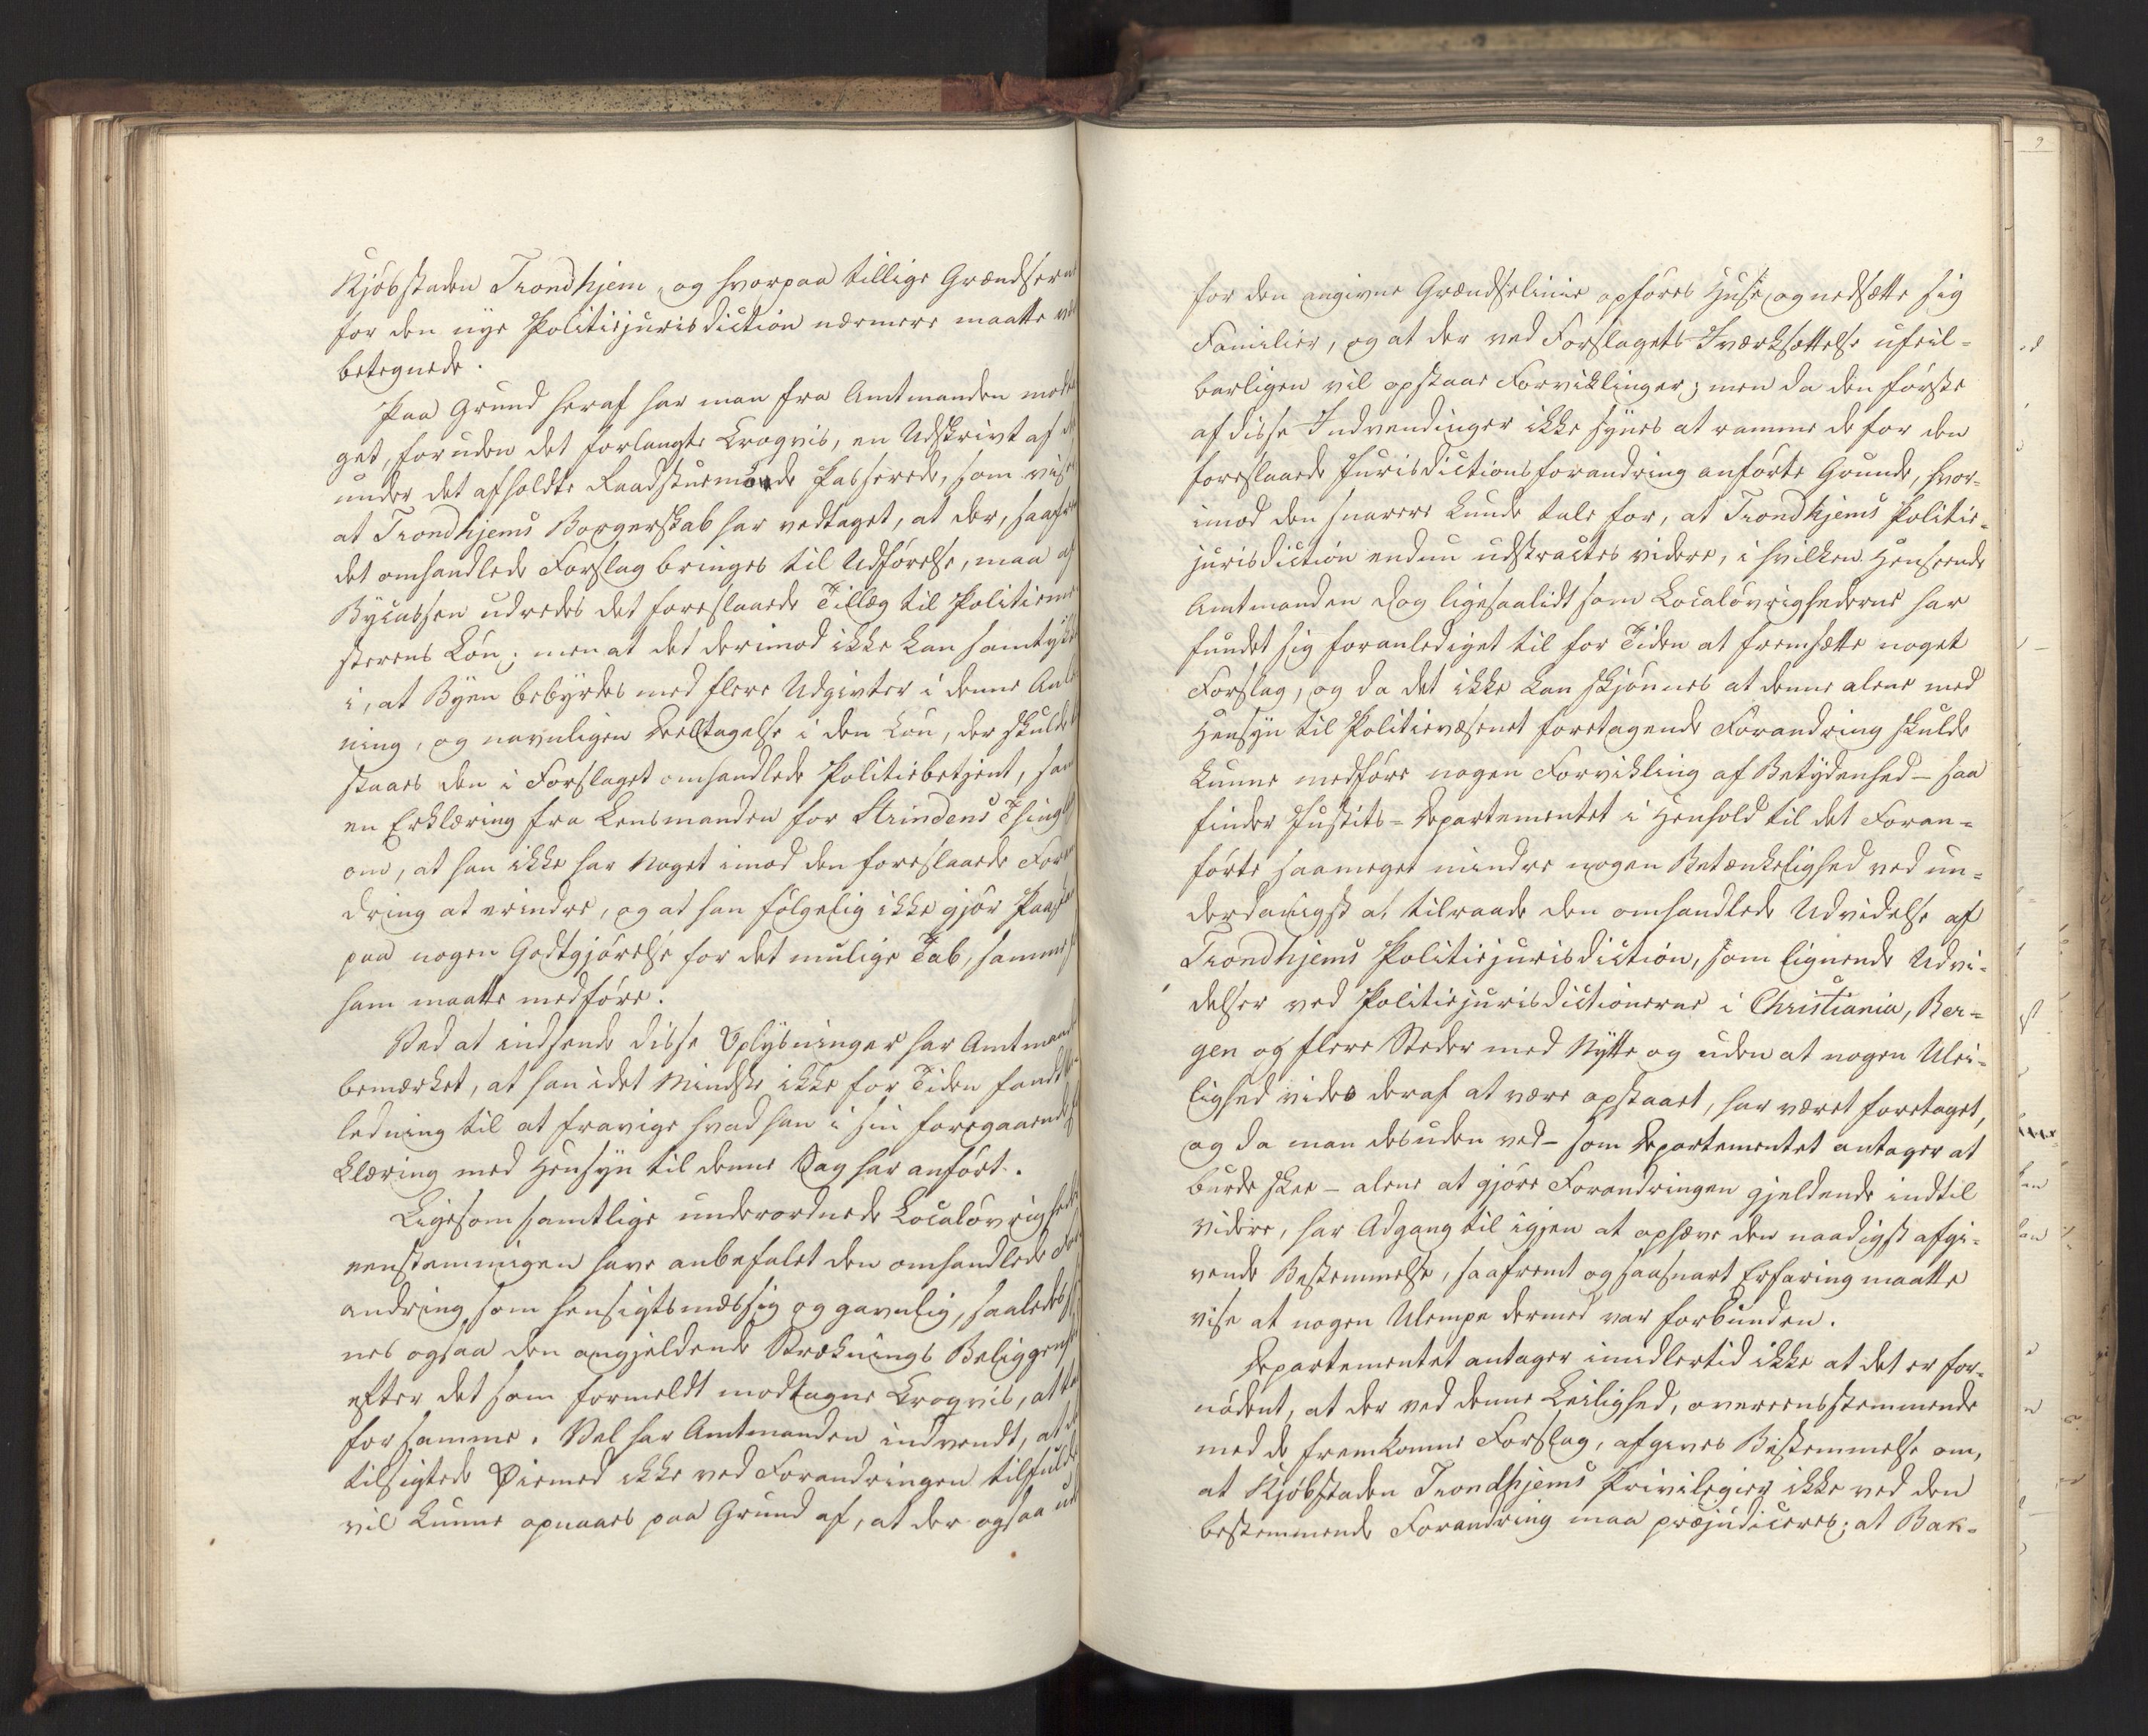 Kjöbstaden Trondhjem, og hvorpaa tillige Grændserne
for den nye Politiejurisdiction nærmere maatte
betegnede.
Paa Grund heraf har man fra Amtmanden modta
get, foruden det forlangte Croqvis, en Udskrivt af
under det afholdte Raadstuemöde Passerede, som viser
at Trondhjems Borgerskab har vedtaget, at der, saafre
det omhandlede Forslag bringes til Udförelse, maa af
Bycassen udredes det foreslaaede Tillæg til Politieme
sterens Lön; men at det derimod ikke kan samtykke
i, at Byen bebyrdes med flere Udgivter i denne Anled
ning, og navnligen Deeltagelse i den Lön, der skulde
staaes den i Forslaget omhandlede Politiebetjent, sam
en Erklæring fra Lensmanden for Strindens Thinglag
om, at han ikke har Noget imod den foreslaaede Foran
dring at erindre, og at han fölgelig ikke gjör Paastand
paa nogen Godtgjörelse for det mulige Tab, samme
ham maatte medföre.
Ved at indsende disse Oplysninger har Amtmanden
bemærket, at han i det Mindste ikke for Tiden fandt
ledning til at fravige hvad han i sin foregaaende
klæring med Hensyn til denne Sag har anfört.
Ligesom samtlige underordnede Localövrigheder
eenstemmigen have anbefalet den omhandlede For
andring som hensigtsmæssig og gavnlig, saaledes
nes ogsaa den angjeldende Stræknings Beliggenhed
efter det som formeldt modtagne Croqvis, at tale
for samme. Vel har Amtmanden indvendt, at
tilsigtede Öiemed ikke ved Forandringen tilfulde
vil kunne opnaaes paa Grund af, at der ogsaa
for den angivne Grændselinie opföres Huse og nedsætte sig
Familier, og at der ved Forslagets Iværksættelse ufeil-
barligen vil opstaae Forviklinger; men da den förste
af disse Indvendinger ikke synes at ramme de for den
foreslaaede Jurisdictionsforandring anförte Grunde, hvor-
imod den snarere kunde tale for, at Trondhjems Politie-
jurisdiction endnu udstractes videre, i hvilken Henseende
Amtmanden dog ligesaalidt som Localövrighederne har
fundet sig foranlediget til for Tiden at fremsætte noget
Forslag, og da det ikke kan skjönnes at denne alene med
Hensyn til Politievæsenet foretagende Forandring skulde
kunne medföre nogen Forvikling af Betydenhed – saa
finder Justits-Departementet i Henhold til det Foran-
förte saameget mindre nogen Betænkelighed ved un-
derdanigst at tilraade den omhandlede Udvidelse af
Trondhjems Politiejurisdiction, som lignende Udvi-
delser ved Politiejurisdictionerne i Christiania, Ber-
gen og flere Steder med Nytte og uden at nogen Ulei-
lighed vides deraf at være opstaaet, har været foretaget,
og da man desuden ved – som Departementet antager at
burde skee – alene at gjöre Forandringen gjeldende indtil
videre, har Adgang til igjen at ophæve den naadigst afgi-
vende Bestemmelse, saafremt og saasnart Erfaring maatte
vise at nogen Ulempe dermed var forbunden.
Departementet antager imidlertid ikke at det er for-
nödent, at der ved denne Leilighed, overeensstemmende
med de fremkomne Forslag, afgives Bestemmelse om,
at Kjöbstaden Trondhjems Privilegier ikke ved den
bestemmende Forandring maa præjudiceres; at Bak-